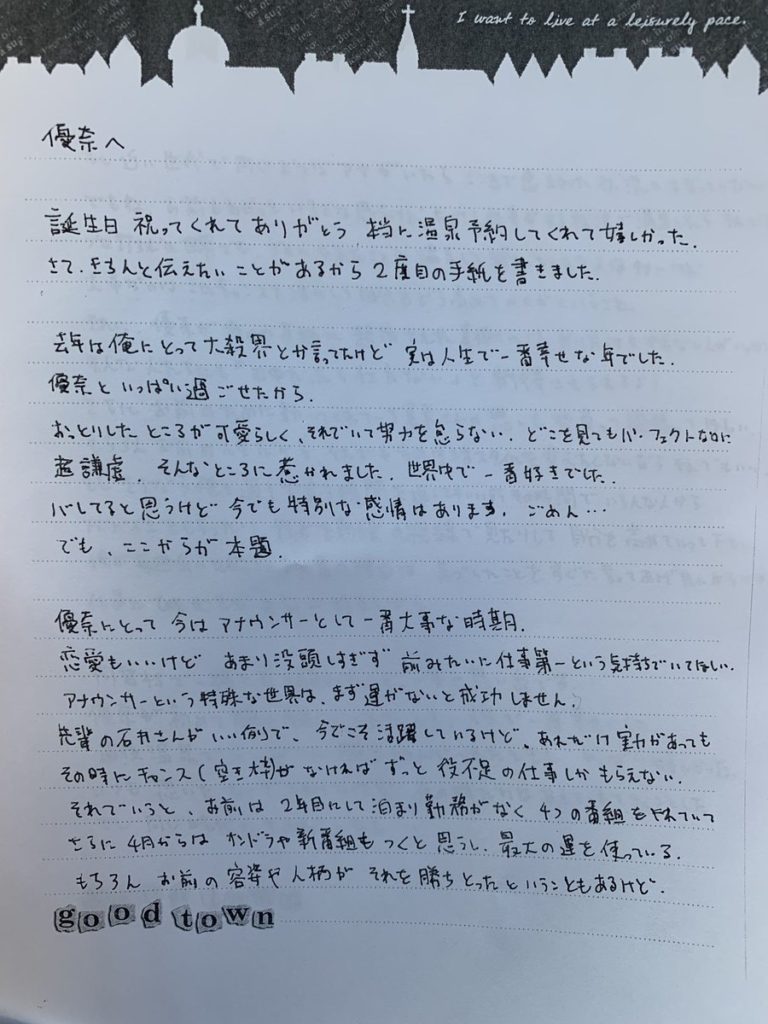 I want to live at a leisurely pace.
優奈へ
誕生日 祝ってくれてありがとう 本当に温泉予約してくれて嬉しかった.
さて、きちんと伝えたいことがあるから 2度目の手紙を書きました.
去年は俺にとって大殺界とか言ってたけど 実は人生で一番幸せな年でした.
優奈といっぱい過ごせたから.
おっとりしたところが可愛らしく、それでいて努力を怠らない. どこを見てもパーフェクトなのに
超謙虚. そんなところに惹かれました. 世界中で一番好きでした.
バレてると思うけど 今でも特別な感情はあります. ごめん…
でも、ここからが本題.
優奈にとって 今はアナウンサーとして一番大事な時期.
恋愛もいいけど あまり没頭しすぎず 前みたいに仕事第一という気持ちでいてほしい.
アナウンサーという特殊な世界は、まず運がないと成功しません.
先輩の石井さんがいい例で、今でこそ活躍しているけど、あれだけ実力があっても
その時にチャンス(空き枠)がなければ ずっと役不足の仕事しかもらえない.
それでいうと、お前は 2年目にして泊まり勤務がなく 4つの番組をやれていて
さらに 4月からは オンドラや新番組もつくと思うし、最大の運を使っている.
もちろん お前の容姿や人柄が それを勝ちとったということもあるけど.
good town